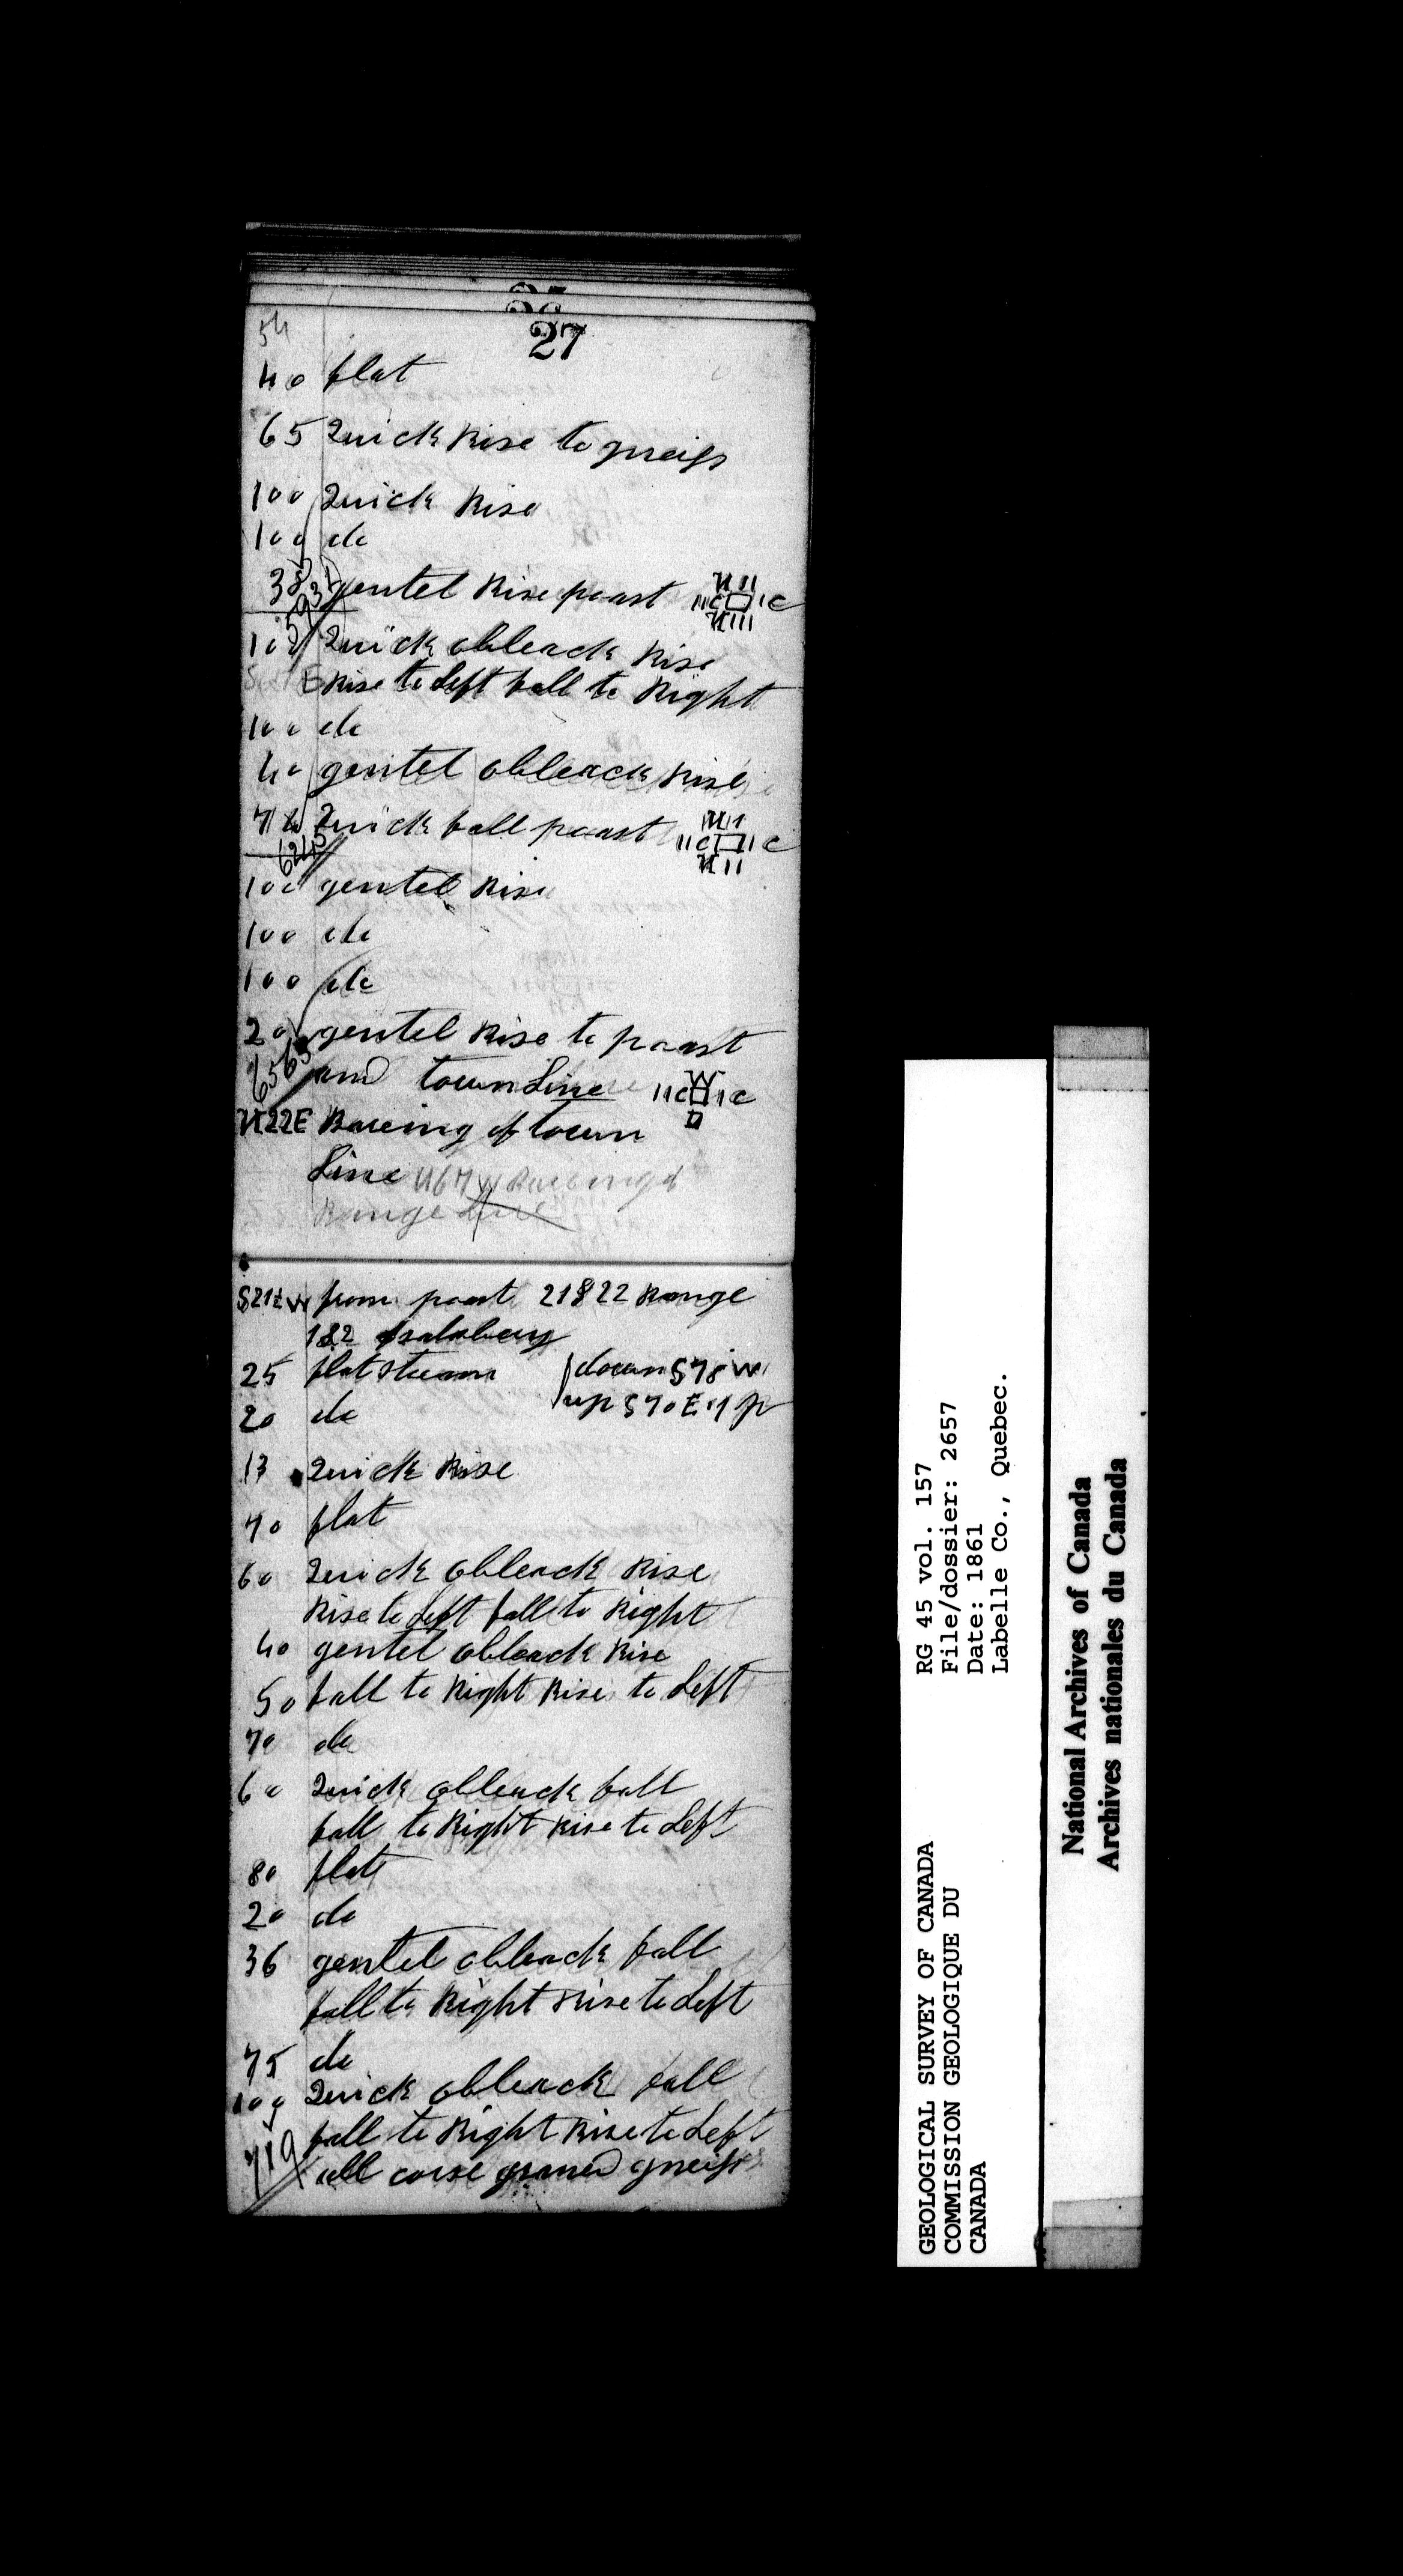 27
54
40 flat
65 Quick Rise to gneiss
100 Quick Rise
100 do
38 gentel Rise poast
593
100 Quick obleack Rise
Rise to Left fall to Right
100 do
40 gentel obleack Rise
74 Quick fall poast
6245
100 gentel Rise
100 do
100 do
20 gentel Rise to poast
6565 and town Line
N22E Bareing of town
Line N67W Bareing of
Range Line
S21½W from poast 21&22 Range
1&2
25 flat steam down S78W
20 do up S70E
13 Quick Rise
70 flat
60 Quick obleack Rise
Rise to Left fall to Right
40 gentel obleack Rise
50 fall to Right Rise to Left
70 do
60 Quick obleack fall
fall to Right Rise to Left
80 flat
20 do
36 gentel obleack fall
fall to Right Rise to Left
75 do
100 Quick obleack fall
fall to Right Rise to Left
719 all corse graned gneiss
GEOLOGICAL SURVEY OF CANADA
COMMISSION GEOLOGIQUE DU
CANADA
RG 45 vol. 157
File/dossier: 2657
Date: 1861
Labelle Co., Quebec.
National Archives of Canada
Archives nationales du Canada